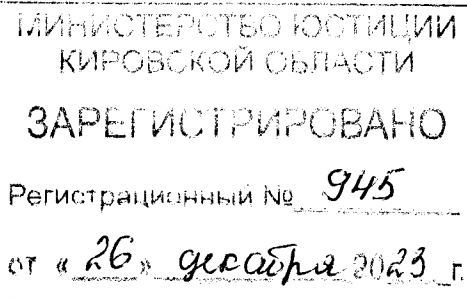 МИНИСТЕРСТВО ЮСТИЦИИ
КИРОВСКОЙ ОБЛАСТИ
ЗАРЕГИСТРИРОВАНО
Регистрационный № 945
от « 26 » декабря 2023 г.